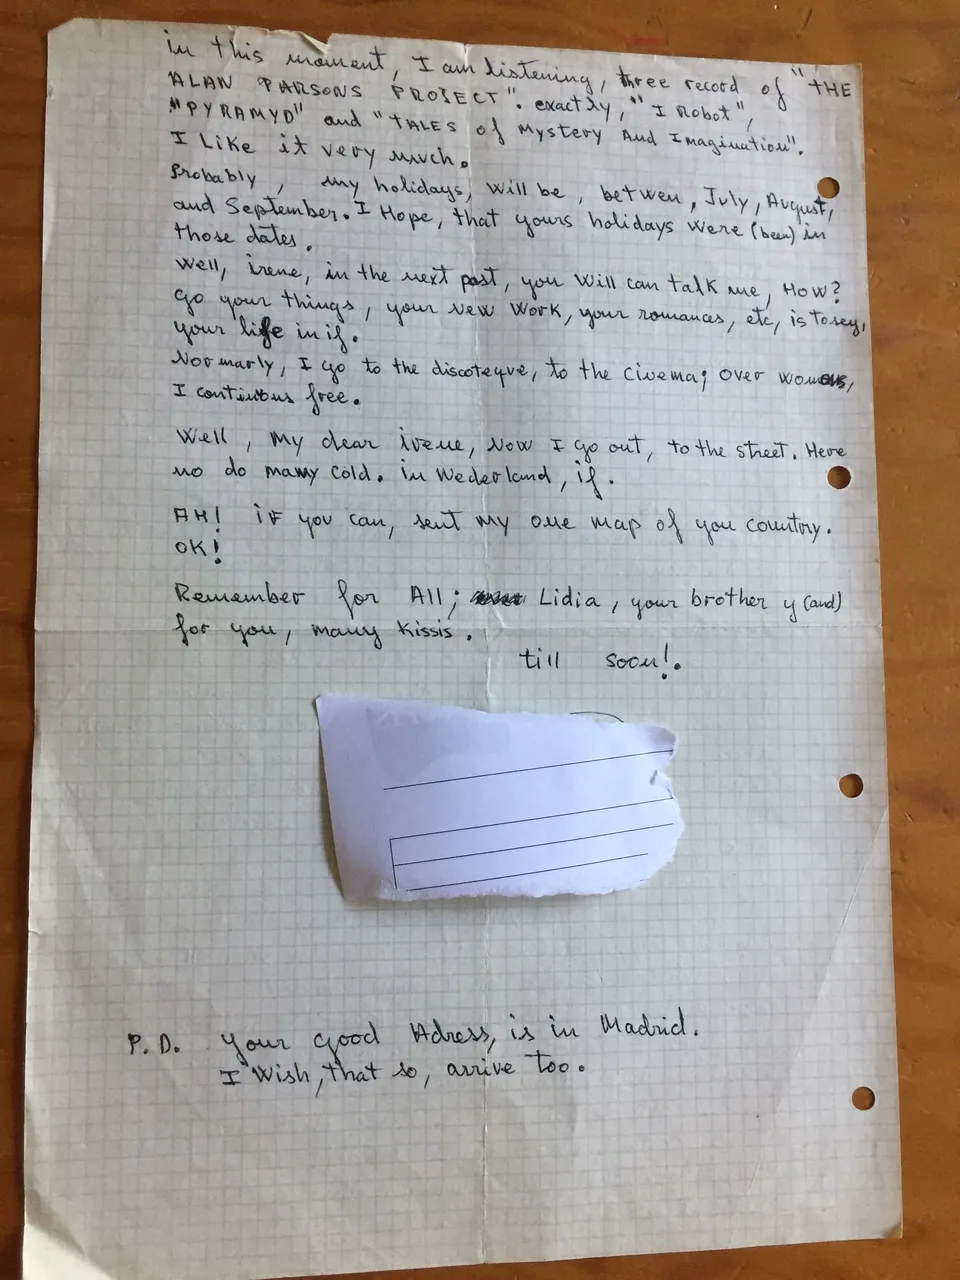 in this moment, I am listening, three record of "THE
ALAN PARSONS PROJECT". exactly, "I Robot",
"PYRAMYD" and "TALES of Mystery And Imagination".
I Like it very much.
Probably, my holidays, will be, betwen, July, August,
and September. I Hope, that yours holidays were (been) in
those dates.
Well, irene, in the next post, you will can talk me, How?
go your things, your new work, your romances, etc, is to sey,
your life in if.
Normarly, I go to the discoteque, to the cinema; over womans,
I continous free.
Well, my dear irene, now I go out, to the street. Here
no do many cold. in Nederland, if.
AH! if you can, sent my one map of you country.
OK!
Remember for All; Lidia, your brother y (and)
for you, many kissis.
till soon!.
P.D. your good Adress, is in Madrid.
I wish, that so, arrive too.